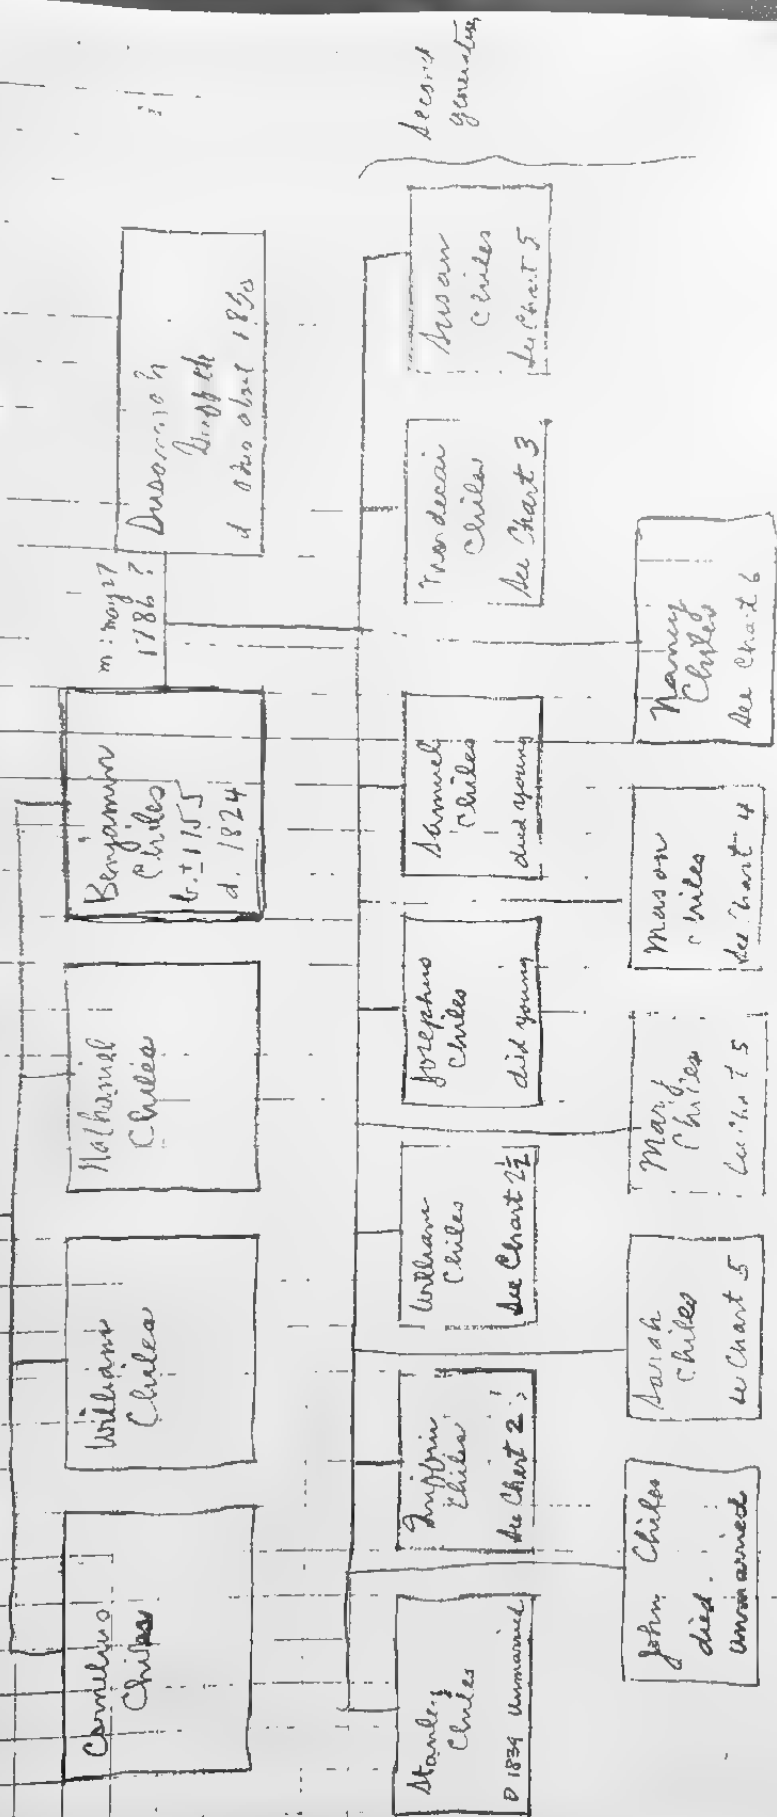 Cornelius
Chiles
William
Chiles
Nathaniel
Chiles
Benjamin
Chiles
b. ± 1755
d. 1824
m: may 27
1786 ?
d about 1850
Second
generation
Stanley
Chiles
D 1839 Unmarried
Chiles
See Chart 2
William
Chiles
See Chart 2½
Josephus
Chiles
died young
Samuel
Chiles
died young
Mordecai
Chiles
See Chart 3
Susan
Chiles
See Chart 5
John Chiles
died.
unmarried
Sarah
Chiles
See Chart 5
Mary
Chiles
See Chart 5
Mason
Chiles
See Chart 4
Nancy
Chiles
See Chart 6